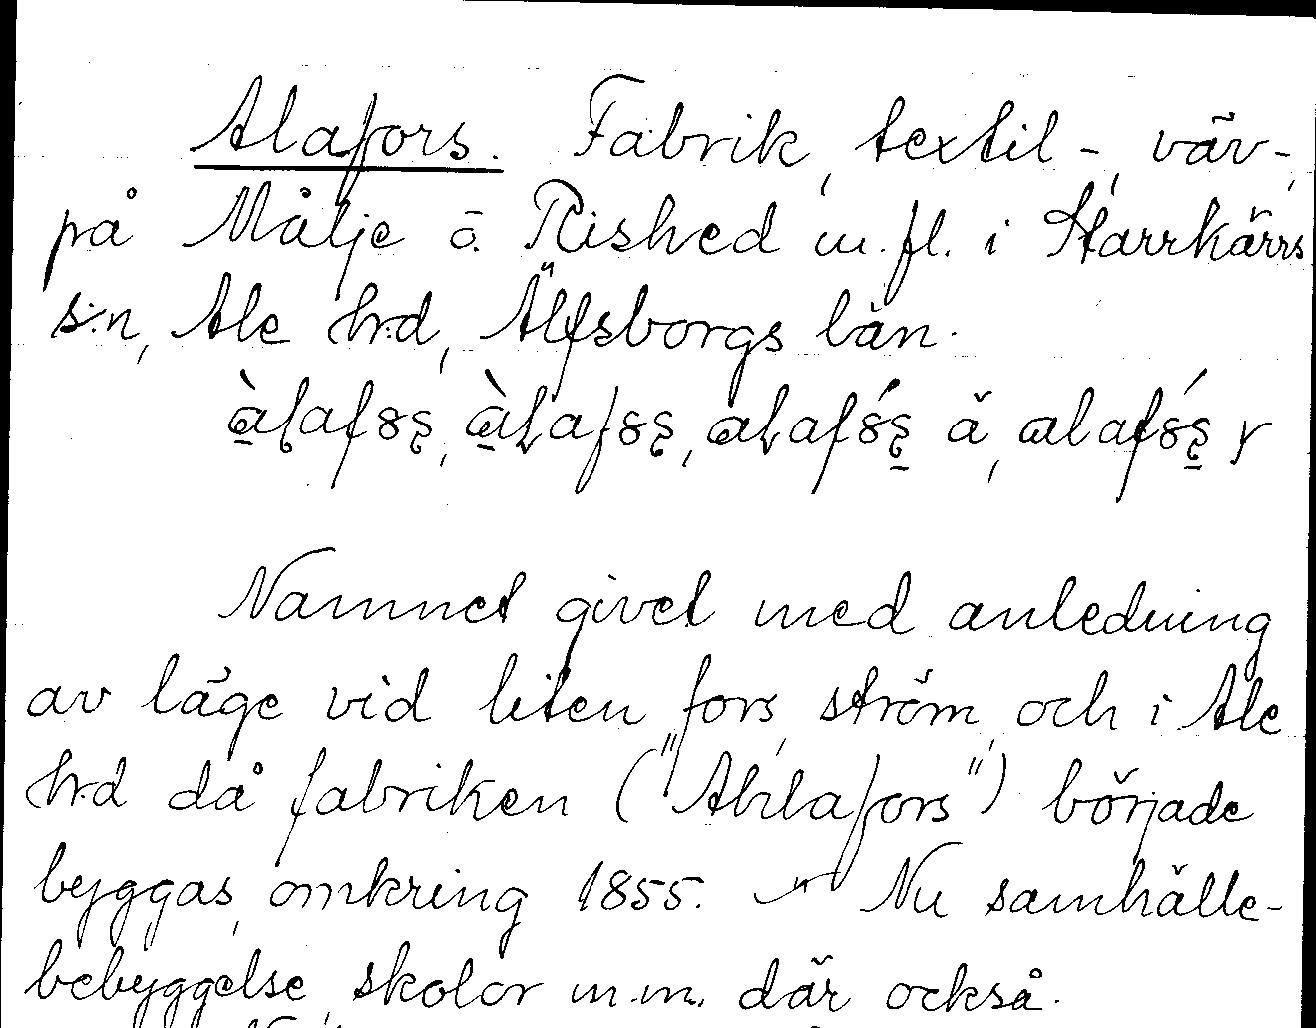 Alafors. Fabrik, textil-, väv-,
på Målje o. Rished m.fl. i Starrkärrs
s:n, Ale h:d, Älfsborgs län.
Namnet givet med anledning
av läge vid liten fors, ström, och i Ale
h:d då fabriken ("Ahlafors") började
byggas, omkring 1855. Nu samhälle-
bebyggelse, skolor m.m. där också.